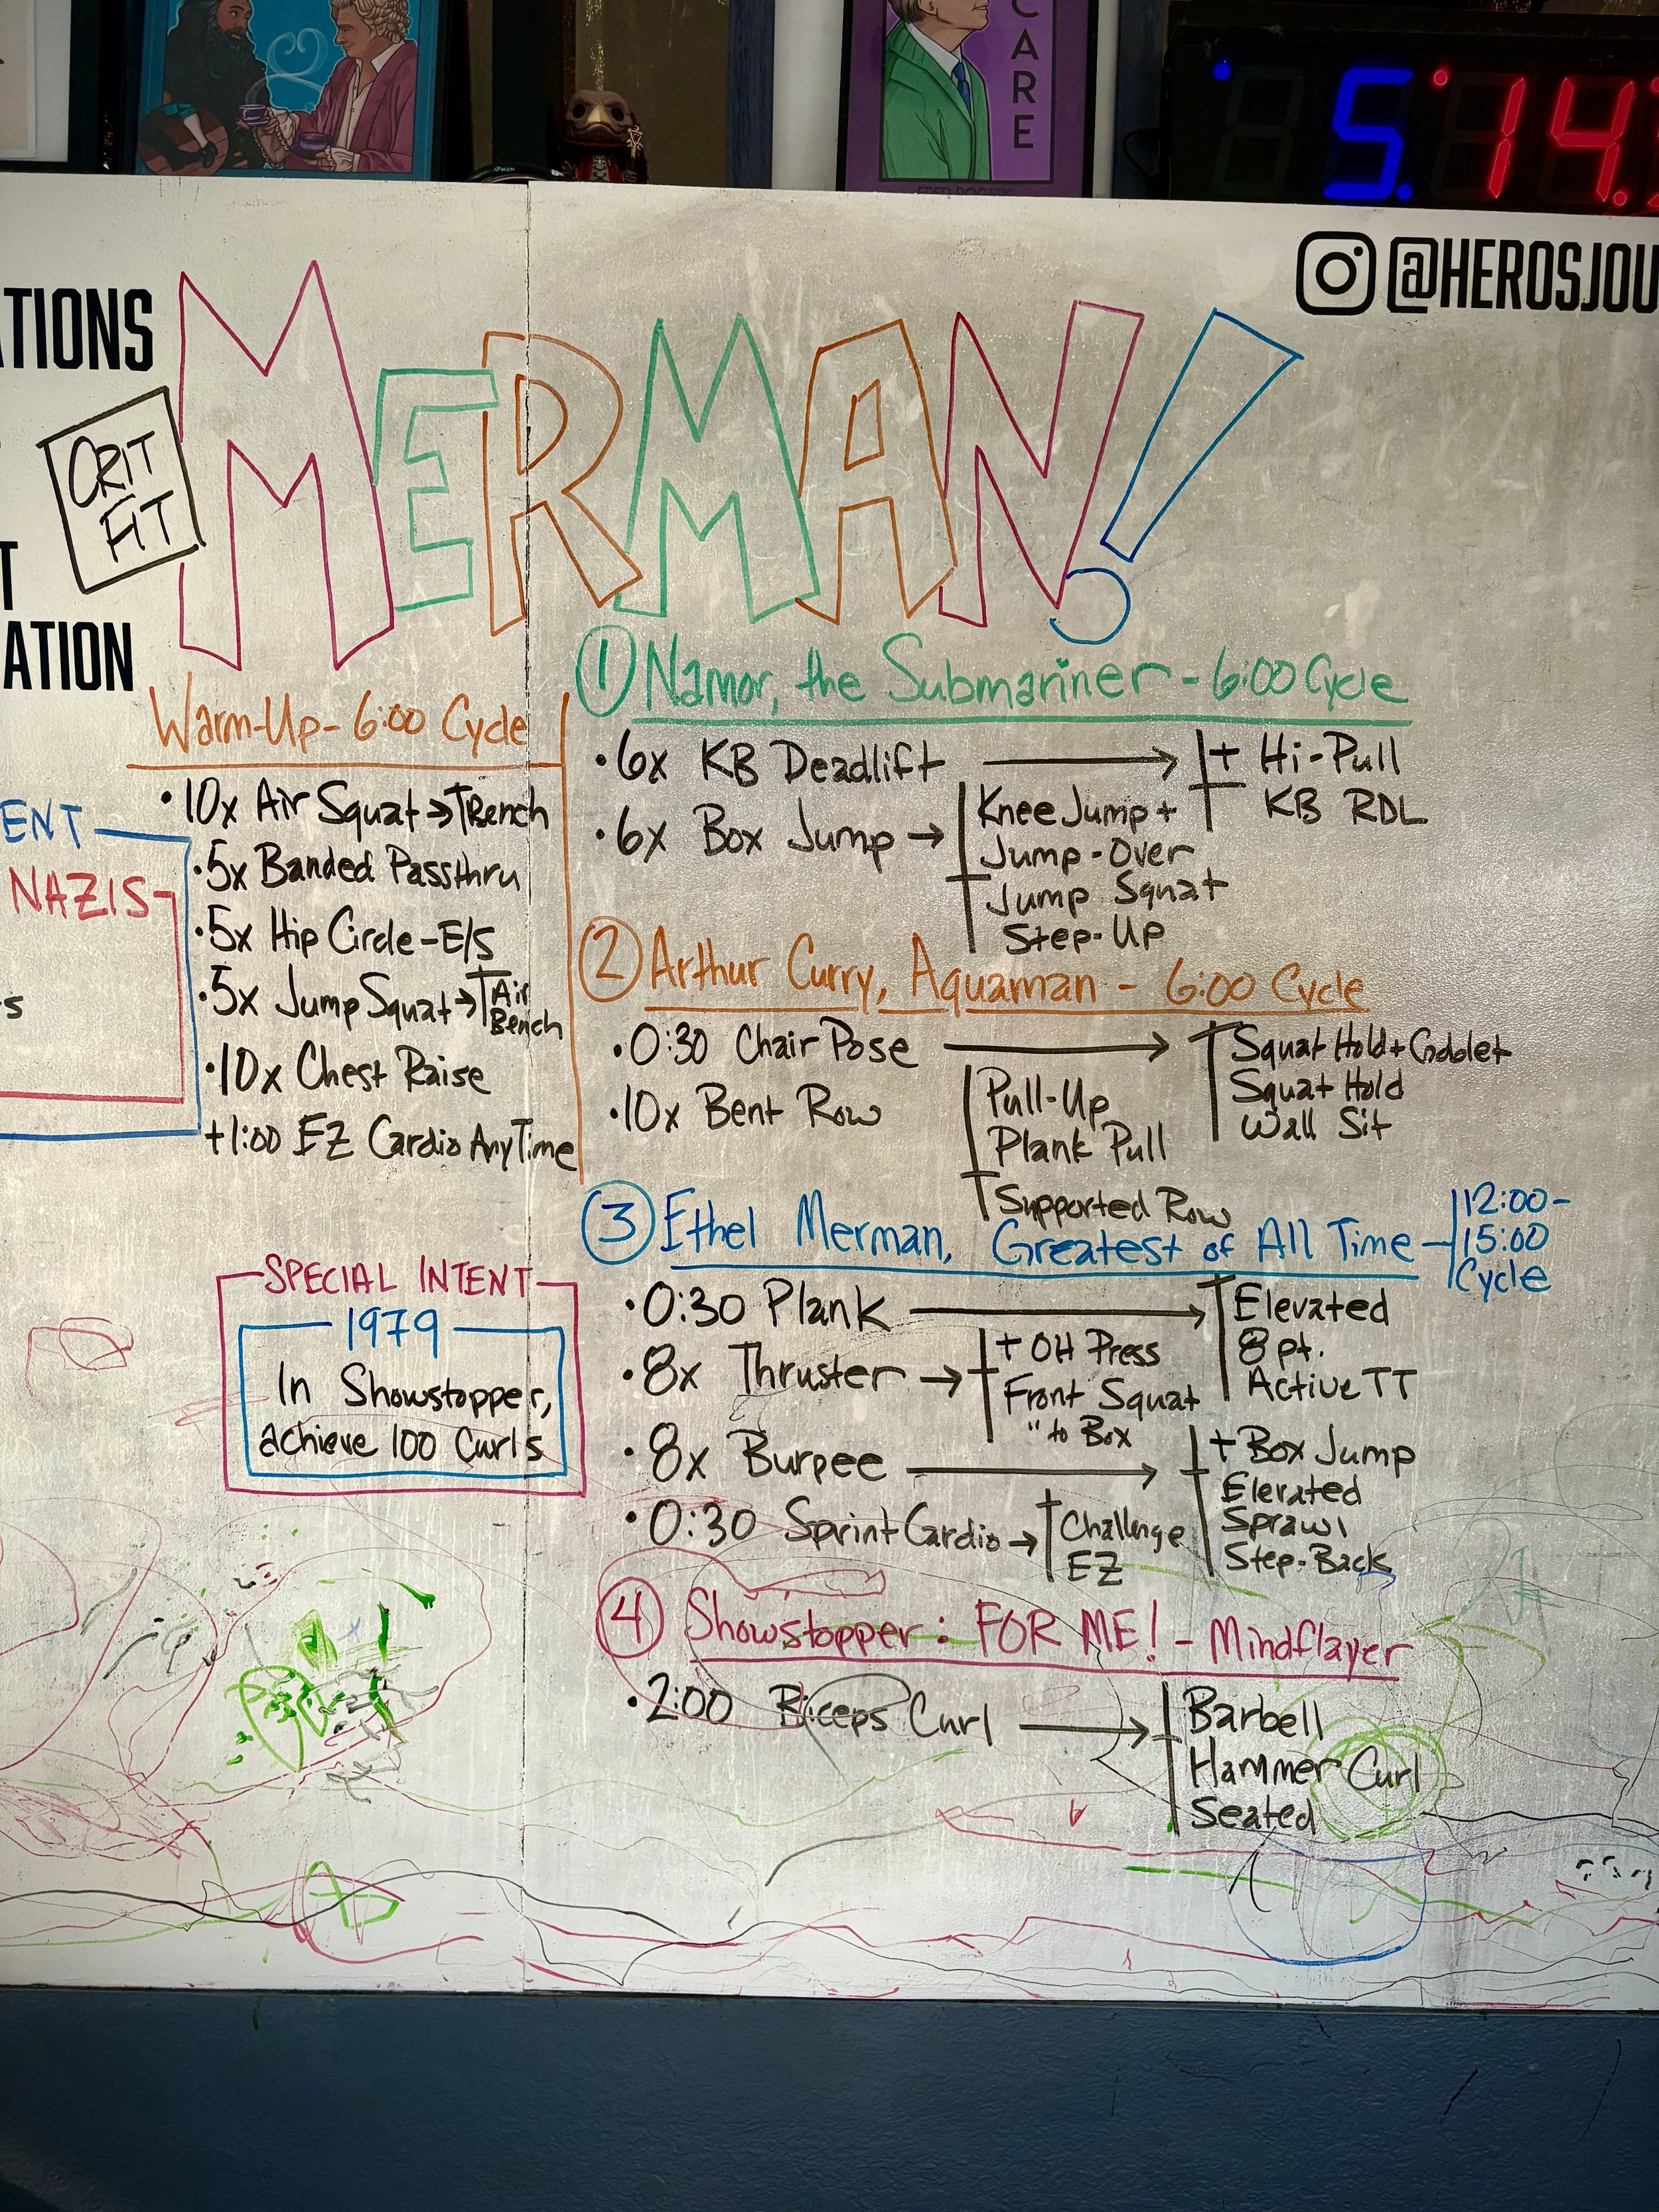 CARE
FRED ROGERS
5.14.
@HEROSJOU
ATIONS
MERMAN!
CRIT
FIT
T
ATION
ENT
NAZIS
s
Warm-Up - 6:00 Cycle
• 10x Air Squat → Bench
• 5x Banded Passthru
• 5x Hip Circle - E/S
• 5x Jump Squat → Air
Bench
• 10x Chest Raise
+1:00 EZ Cardio AnyTime
SPECIAL INTENT
1979
In Showstopper,
achieve 100 Curls
① Namor, the Submariner - 6:00 Cycle
• 6x KB Deadlift → + Hi-Pull
KB RDL
• 6x Box Jump → Knee Jump +
Jump-Over
Jump Squat
Step-Up
② Arthur Curry, Aquaman - 6:00 Cycle
• 0:30 Chair Pose → Squat Hold + Goblet
Squat Hold
Wall Sit
• 10x Bent Row
Pull-Up
Plank Pull
Supported Row
③ Ethel Merman, Greatest of All Time - 12:00-
15:00
Cycle
• 0:30 Plank → Elevated
8 pt.
Active TT
• 8x Thruster → + OH Press
Front Squat
" to Box
• 8x Burpee → + Box Jump
Elevated
Sprawl
Step-Back
• 0:30 Sprint Cardio → Challenge
EZ
④ Showstopper: FOR ME! - Mindflayer
• 2:00 Biceps Curl → Barbell
Hammer Curl
Seated